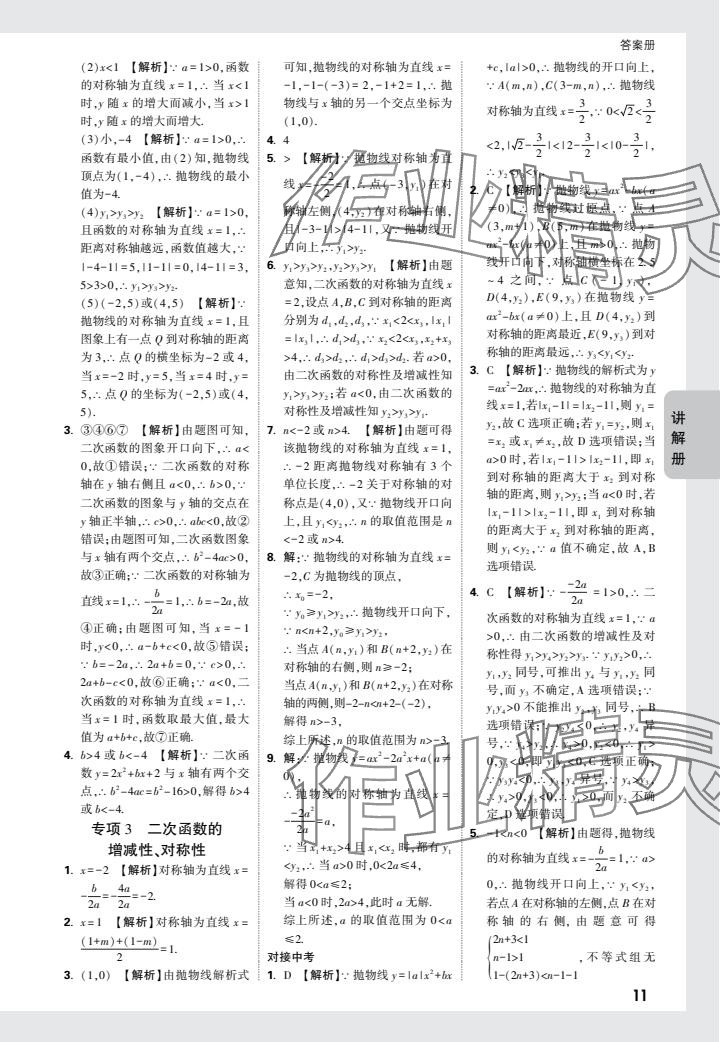 答案册
(2)x<1 【解析】∵ a=1>0,函数
的对称轴为直线 x=1,∴ 当 x<1
时,y 随 x 的增大而减小,当 x>1
时,y 随 x 的增大而增大.
(3)小,-4 【解析】∵ a=1>0,∴
函数有最小值,由(2)知,抛物线
顶点为(1,-4),∴ 抛物线的最小
值为-4.
(4)y₁>y₃>y₂ 【解析】∵ a=1>0,
且函数的对称轴为直线 x=1,∴
距离对称轴越远,函数值越大,∵
|-4-1|=5,|1-1|=0,|4-1|=3,
5>3>0,∴ y₁>y₃>y₂.
(5)(-2,5)或(4,5) 【解析】∵
抛物线的对称轴为直线 x=1,且
图象上有一点 Q 到对称轴的距离
为 3,∴ 点 Q 的横坐标为-2 或 4,
当 x=-2 时,y=5,当 x=4 时,y=
5,∴ 点 Q 的坐标为(-2,5)或(4,
5).
3. ③④⑥⑦ 【解析】由题图可知,
二次函数的图象开口向下,∴ a<
0,故①错误;∵ 二次函数的对称
轴在 y 轴右侧且 a<0,∴ b>0,∵
二次函数的图象与 y 轴的交点在
y 轴正半轴,∴ c>0,∴ abc<0,故②
错误;由题图可知,二次函数图象
与 x 轴有两个交点,∴ b²-4ac>0,
故③正确;∵ 二次函数的对称轴为
直线 x=1,∴ -b/2a=1,∴ b=-2a,故
④正确;由题图可知,当 x=-1
时,y<0,∴ a-b+c<0,故⑤错误;
∵ b=-2a,∴ 2a+b=0,∵ c>0,∴
2a+b-c<0,故⑥正确;∵ a<0,二
次函数的对称轴为直线 x=1,∴
当 x=1 时,函数取最大值,最大
值为 a+b+c,故⑦正确.
4. b>4 或 b<-4 【解析】∵ 二次函
数 y=2x²+bx+2 与 x 轴有两个交
点,∴ b²-4ac=b²-16>0,解得 b>4
或 b<-4.
专项 3 二次函数的
增减性、对称性
1. x=-2 【解析】对称轴为直线 x=
-b/2a=-4a/2a=-2.
2. x=1 【解析】对称轴为直线 x=
((1+m)+(1-m))/2=1.
3. (1,0) 【解析】由抛物线解析式
可知,抛物线的对称轴为直线 x=
-1,-1-(-3)=2,-1+2=1,∴ 抛
物线与 x 轴的另一个交点坐标为
(1,0).
4. 4
5. > 【解析】∵ 抛物线对称轴为直
线 x=-(-2)/2=1,∴ 点(-3,y₁)在对
称轴左侧,(4,y₂)在对称轴右侧,
且|-3-1|>|4-1|,又∵ 抛物线开
口向上,∴ y₁>y₂.
6. y₁>y₃>y₂,y₂>y₃>y₁ 【解析】由题
意知,二次函数的对称轴为直线 x
=2,设点 A,B,C 到对称轴的距离
分别为 d₁,d₂,d₃,∵ x₁<2<x₃,|x₁|
=|x₃|,∴ d₁>d₃,∵ x₂<2<x₃,x₂+x₃
>4,∴ d₃>d₂,∴ d₁>d₃>d₂. 若 a>0,
由二次函数的对称性及增减性知
y₁>y₃>y₂;若 a<0,由二次函数的
对称性及增减性知 y₂>y₃>y₁.
7. n<-2 或 n>4. 【解析】由题可得
该抛物线的对称轴为直线 x=1,
∴ -2 距离抛物线对称轴有 3 个
单位长度,∴ -2 关于对称轴的对
称点是(4,0),又∵ 抛物线开口向
上,且 y₁<y₂,∴ n 的取值范围是 n
<-2 或 n>4.
8. 解:∵ 抛物线的对称轴为直线 x=
-2,C 为抛物线的顶点,
∴ x₀=-2,
∵ y₀≥y₁>y₂,∴ 抛物线开口向下,
∵ n<n+2,y₀≥y₁>y₂,
∴ 当点 A(n,y₁)和 B(n+2,y₂)在
对称轴的右侧,则 n≥-2;
当点 A(n,y₁)和 B(n+2,y₂)在对称
轴的两侧,则-2-n<n+2-(-2),
解得 n>-3,
综上所述,n 的取值范围为 n>-3.
9. 解:∵ 抛物线 y=ax²-2a²x+a(a≠
0),
∴ 抛物线的对称轴为直线 x=
-(-2a²)/2a=a,
∵ 当 x₁+x₂>4 且 x₁<x₂ 时,都有 y₁
<y₂,∴ 当 a>0 时,0<2a≤4,
解得 0<a≤2;
当 a<0 时,2a>4,此时 a 无解.
综上所述,a 的取值范围为 0<a
≤2.
对接中考
1. D 【解析】∵ 抛物线 y=|a|x²+bx
+c,|a|>0,∴ 抛物线的开口向上,
∵ A(m,n),C(3-m,n),∴ 抛物线
对称轴为直线 x=3/2,∵ 0<√2<3/2
<2,|√2-3/2|<|2-3/2|<|0-3/2|,
∴ y₂<y₃<y₁.
2. C 【解析】∵ 抛物线 y=ax²-bx(a
≠0),∴ 抛物线过原点,∵ 点 A
(3,m+1),B(5,m)在抛物线 y=
ax²-bx(a≠0)上,且 m>0,∴ 抛物
线开口向下,对称轴横坐标在 2.5
~4 之间,∵ 点 C(-1,y₁),
D(4,y₂),E(9,y₃)在抛物线 y=
ax²-bx(a≠0)上,且 D(4,y₂)到
对称轴的距离最近,E(9,y₃)到对
称轴的距离最远,∴ y₃<y₁<y₂.
3. C 【解析】∵ 抛物线的解析式为 y
=ax²-2ax,∴ 抛物线的对称轴为直
线 x=1,若|x₁-1|=|x₂-1|,则 y₁=
y₂,故 C 选项正确;若 y₁=y₂,则 x₁
=x₂ 或 x₁≠x₂,故 D 选项错误;当
a>0 时,若|x₁-1|>|x₂-1|,即 x₁
到对称轴的距离大于 x₂ 到对称
轴的距离,则 y₁>y₂;当 a<0 时,若
|x₁-1|>|x₂-1|,即 x₁ 到对称轴
的距离大于 x₂ 到对称轴的距离,
则 y₁<y₂,∵ a 值不确定,故 A,B
选项错误.
4. C 【解析】∵ -(-2a)/2a=1>0,∴ 二
次函数的对称轴为直线 x=1,∵ a
>0,∴ 由二次函数的增减性及对
称性得 y₁>y₄>y₂>y₃.∵ y₁y₂>0,∴
y₁,y₂ 同号,可推出 y₄ 与 y₁,y₂ 同
号,而 y₃ 不确定,A 选项错误;∵
y₁y₄>0 不能推出 y₂,y₃ 同号,∴ B
选项错误;∵ y₂y₄<0,∴ y₂,y₄ 异
号,∵ y₄>y₂,∴ y₄>0,y₂<0,∴ y₁>
0,y₃<0,即 y₁y₃<0,C 选项正确;
∵ y₃y₄<0,∴ y₃,y₄ 异号,∵ y₄>y₃,
∴ y₄>0,y₃<0,∴ y₁>0,而 y₂ 不确
定,D 选项错误.
5. -1<n<0 【解析】由题得,抛物线
的对称轴为直线 x=-b/2a=1,∵ a>
0,∴ 抛物线开口向上,∵ y₁<y₂,
若点 A 在对称轴的左侧,点 B 在对
称轴的右侧,由题意可得
{2n+3<1
n-1>1 ,不等式组无
1-(2n+3)<n-1-1
讲解册
11
作业精灵
作业精灵